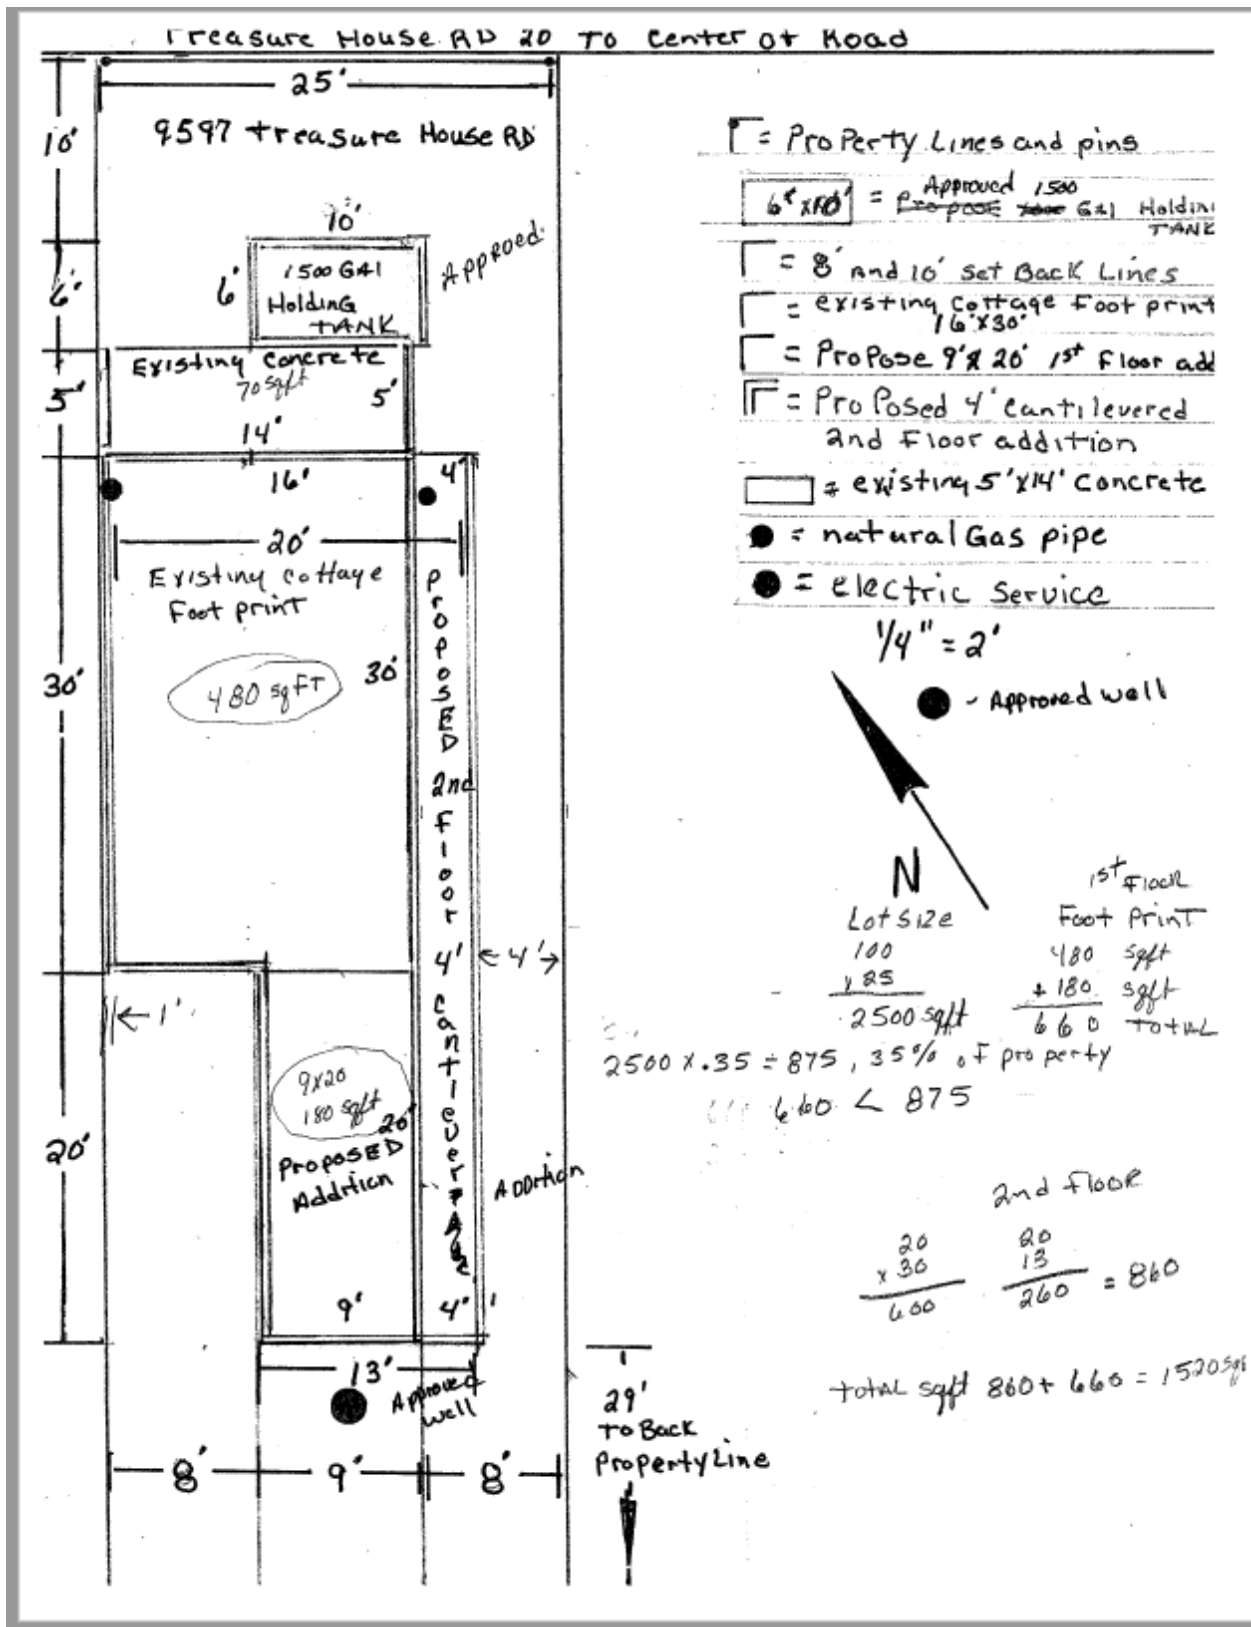 Treasure House RD 20 To Center of Road
25'
10'
9597 treasure House RD
10'
6'
6'
1500 GAl
Holding
TANK
Approed
Existing Concrete
70 sqft
5'
5'
14'
16'
4'
20'
Existing Cottage
Foot print
480 sqFT
30'
30'
PROPOSED 2nd Floor 4' cantilever
4'
1'
9x20
180 sqft
20'
20'
PROPOSED
Addition
Addrtion
9'
4'
13'
Approved
well
8'
9'
8'
29'
to Back
Property Line
= Property Lines and pins
6' x 10' = Approved 1500
Propose GAl Holdin
TANK
= 8' And 10' Set Back Lines
= existing Cottage Foot print
16'x30'
= Propose 9'x 20' 1st Floor add
= ProPosed 4' Cantilevered
2nd Floor addition
= existing 5'x14' Concrete
= natural Gas pipe
= electric Service
1/4" = 2'
- Approved well
N
Lot Size
100
x 25
2500 sqft
1st Floor
Foot Print
480 sqft
+ 180 sqft
660 TOTAL
2500 x .35 = 875, 35% of property
660 < 875
2nd Floor
20
x 30
600
20
13
260 = 860
total sqft 860 + 660 = 1520 sqf